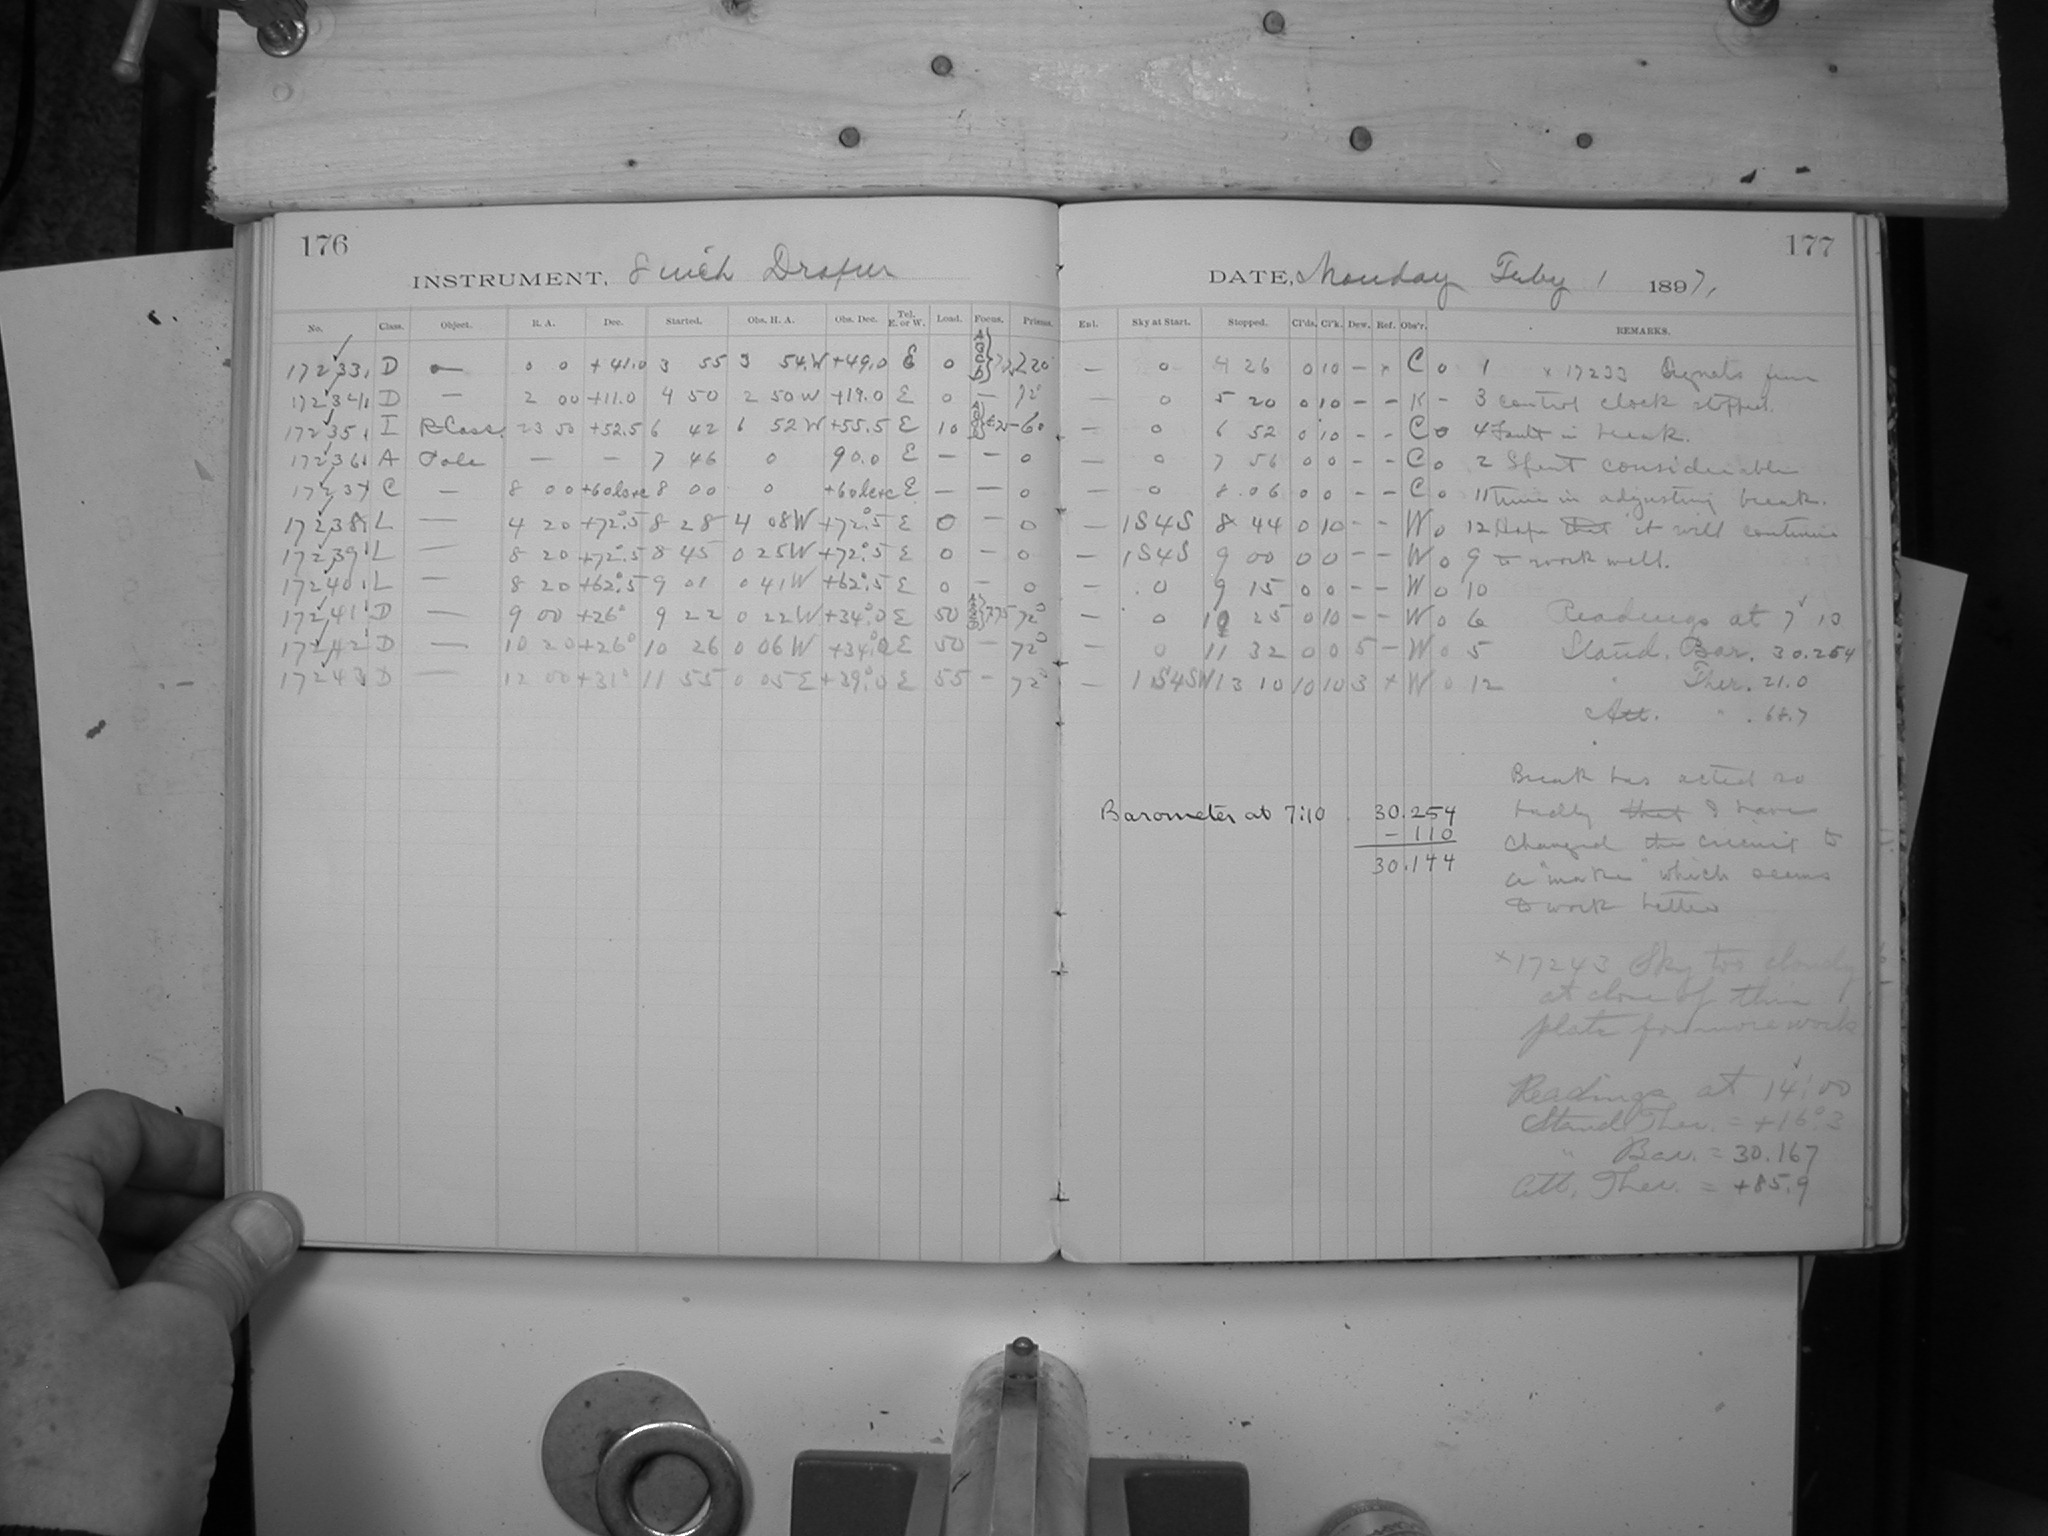 176
INSTRUMENT, 8 inch Draper
No. Class. Object. R. A. Dec. Started. Obs. H. A. Obs. Dec. Tel. E. or W. Load. Focus. Prisms.
17233 D — 0 0 +41.0 3 55 3 54 W +49.0 E 0
17234 D — 2 00 +11.0 4 50 2 50 W +19.0 E 0 — 72°
17235 I R Cass. 23 50 +52.5 6 42 6 52 W +55.5 E 10
17236 A Pole — — 7 46 0 90.0 E — — 0
17237 C — 8 00 8 00 0 E — — 0
17238 L — 4 20 +72°.5 8 28 4 08 W +72°.5 E 0 — 0
17239 L — 8 20 +72°.5 8 45 0 25 W +72°.5 E 0 — 0
17240 L — 8 20 +62°.5 9 01 0 41 W +62°.5 E 0 — 0
17241 D — 9 00 +26° 9 22 0 22 W +34°.0 E 50 72°
17242 D — 10 20 +26° 10 26 0 06 W +34°.0 E 50 — 72°
17243 D — 12 00 +31° 11 55 0 05 E +39°.0 E 55 — 72°
177
DATE, Monday Feby 1 1897,
Enl. Sky at Start. Stopped. Cl'ds. Cl'k. Dew. Ref. Obs'r. REMARKS.
— 0 4 26 0 10 – × C 0 1 × 17233 Signals from
— 0 5 20 0 10 – – K – 3 control clock stopped.
— 0 6 52 0 10 – – C 0 4 Fault in break.
— 0 7 56 0 0 – – C 0 2 Spent considerable
— 0 8.06 0 0 – – C 0 11 time in adjusting break.
— 1S4S 8 44 0 10 – – W 0 12 Hope that it will continue
— 1S4S 9 00 0 0 – – W 0 9 to work well.
— 0 9 15 0 0 – – W 0 10
— 0 10 25 0 10 – – W 0 6 Readings at 7 10
— 0 11 32 0 0 5 – W 0 5 Stand. Bar. 30.254
— 1S4SW 13 10 10 10 3 × W 0 12 " Ther. 21.0
Att. " . 68.7
Break has acted so
badly that I have
changed the circuit to
a "make" which seems
to work better
Barometer at 7:10 30.254
– 110
30.144
× 17243 Sky too cloudy
at close of this
plate for more work
Readings at 14:00
Stand Ther. = +16°.3
" Bar. = 30.167
Att. Ther. = +85.9